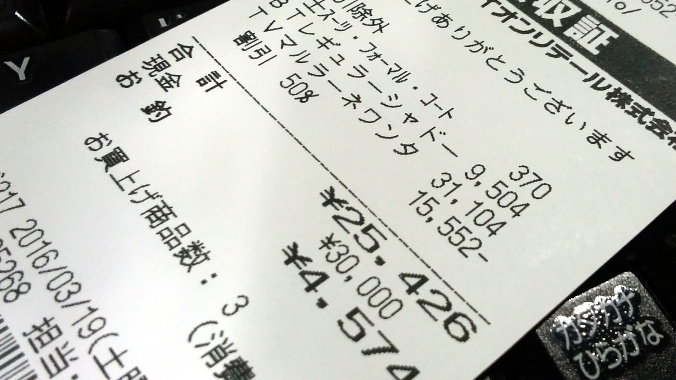 収証
イオンリテール株式会
げありがとうございます
除外 370
フォーマル・コート
Tレギュラーシャドー 9,504
TVマルラーネワンタ 31,104
割引 50% 15,552-
合 計 ¥25,426
現金 ¥30,000
お 釣 ¥4,574
お買上げ商品数: 3 (消費
2016/03/19(土
5268 担当:
Y
カタカナ
ひらがな